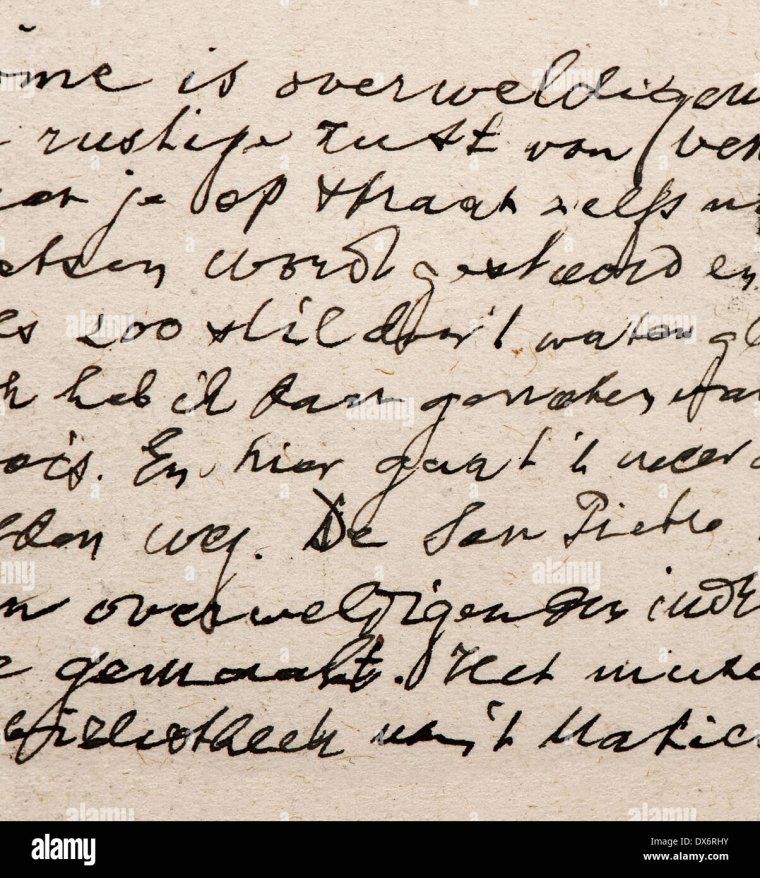 ome is overweldigen
rustige rust van Ven
je op straat zelfs
etsen wordt gestoord en
es zoo stil door 't water gl
heb ik dan genoten
ois. En hier gaat 't weer
den weg. De San Pietro
n overweldigenden indr
e gemaakt. Het
bibliotheek van 't Vatica
alamy
Image ID: DX6RHY
www.alamy.com